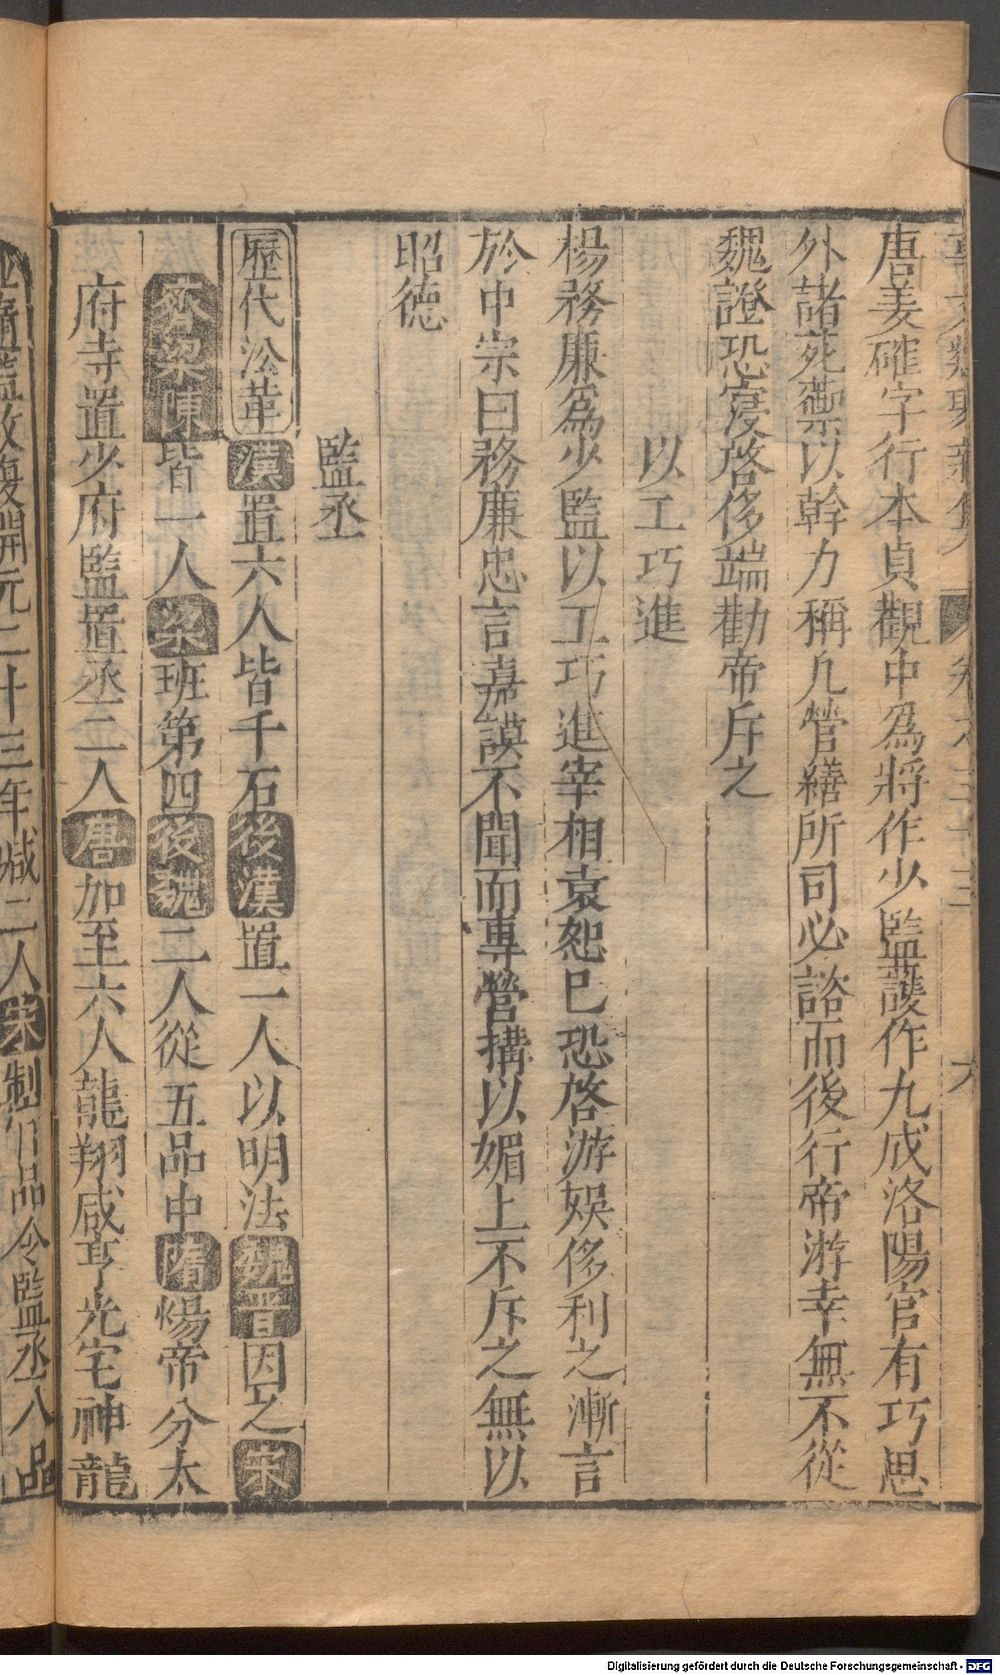 唐姜確字行本貞觀中爲將作少監護作九成洛陽宫有巧思
外諸苑籞以幹力稱凢營繕所司必諮而後行帝游幸無不從
魏證恐寖啓侈端勸帝斥之
以工巧進
楊務廉爲少監以工巧進宰相袁恕巳恐啓游娱侈利之漸言
於中宗曰務廉忠言嘉謨不聞而專營搆以媚上不斥之無以
昭德
監丞
歷代沿革漢置六人皆千石後漢置一人以明法魏晋因之宋
齊梁陳皆一人梁班第四後魏二人從五品中隋煬帝分太
府寺置少府監置丞二人唐加至六人龍翔咸亨光宅神龍
並隨監改復開元二十三年减二人宋制
品令監丞八品
Digitalisierung gefördert durch die Deutsche Forschungsgemeinschaft - DFG